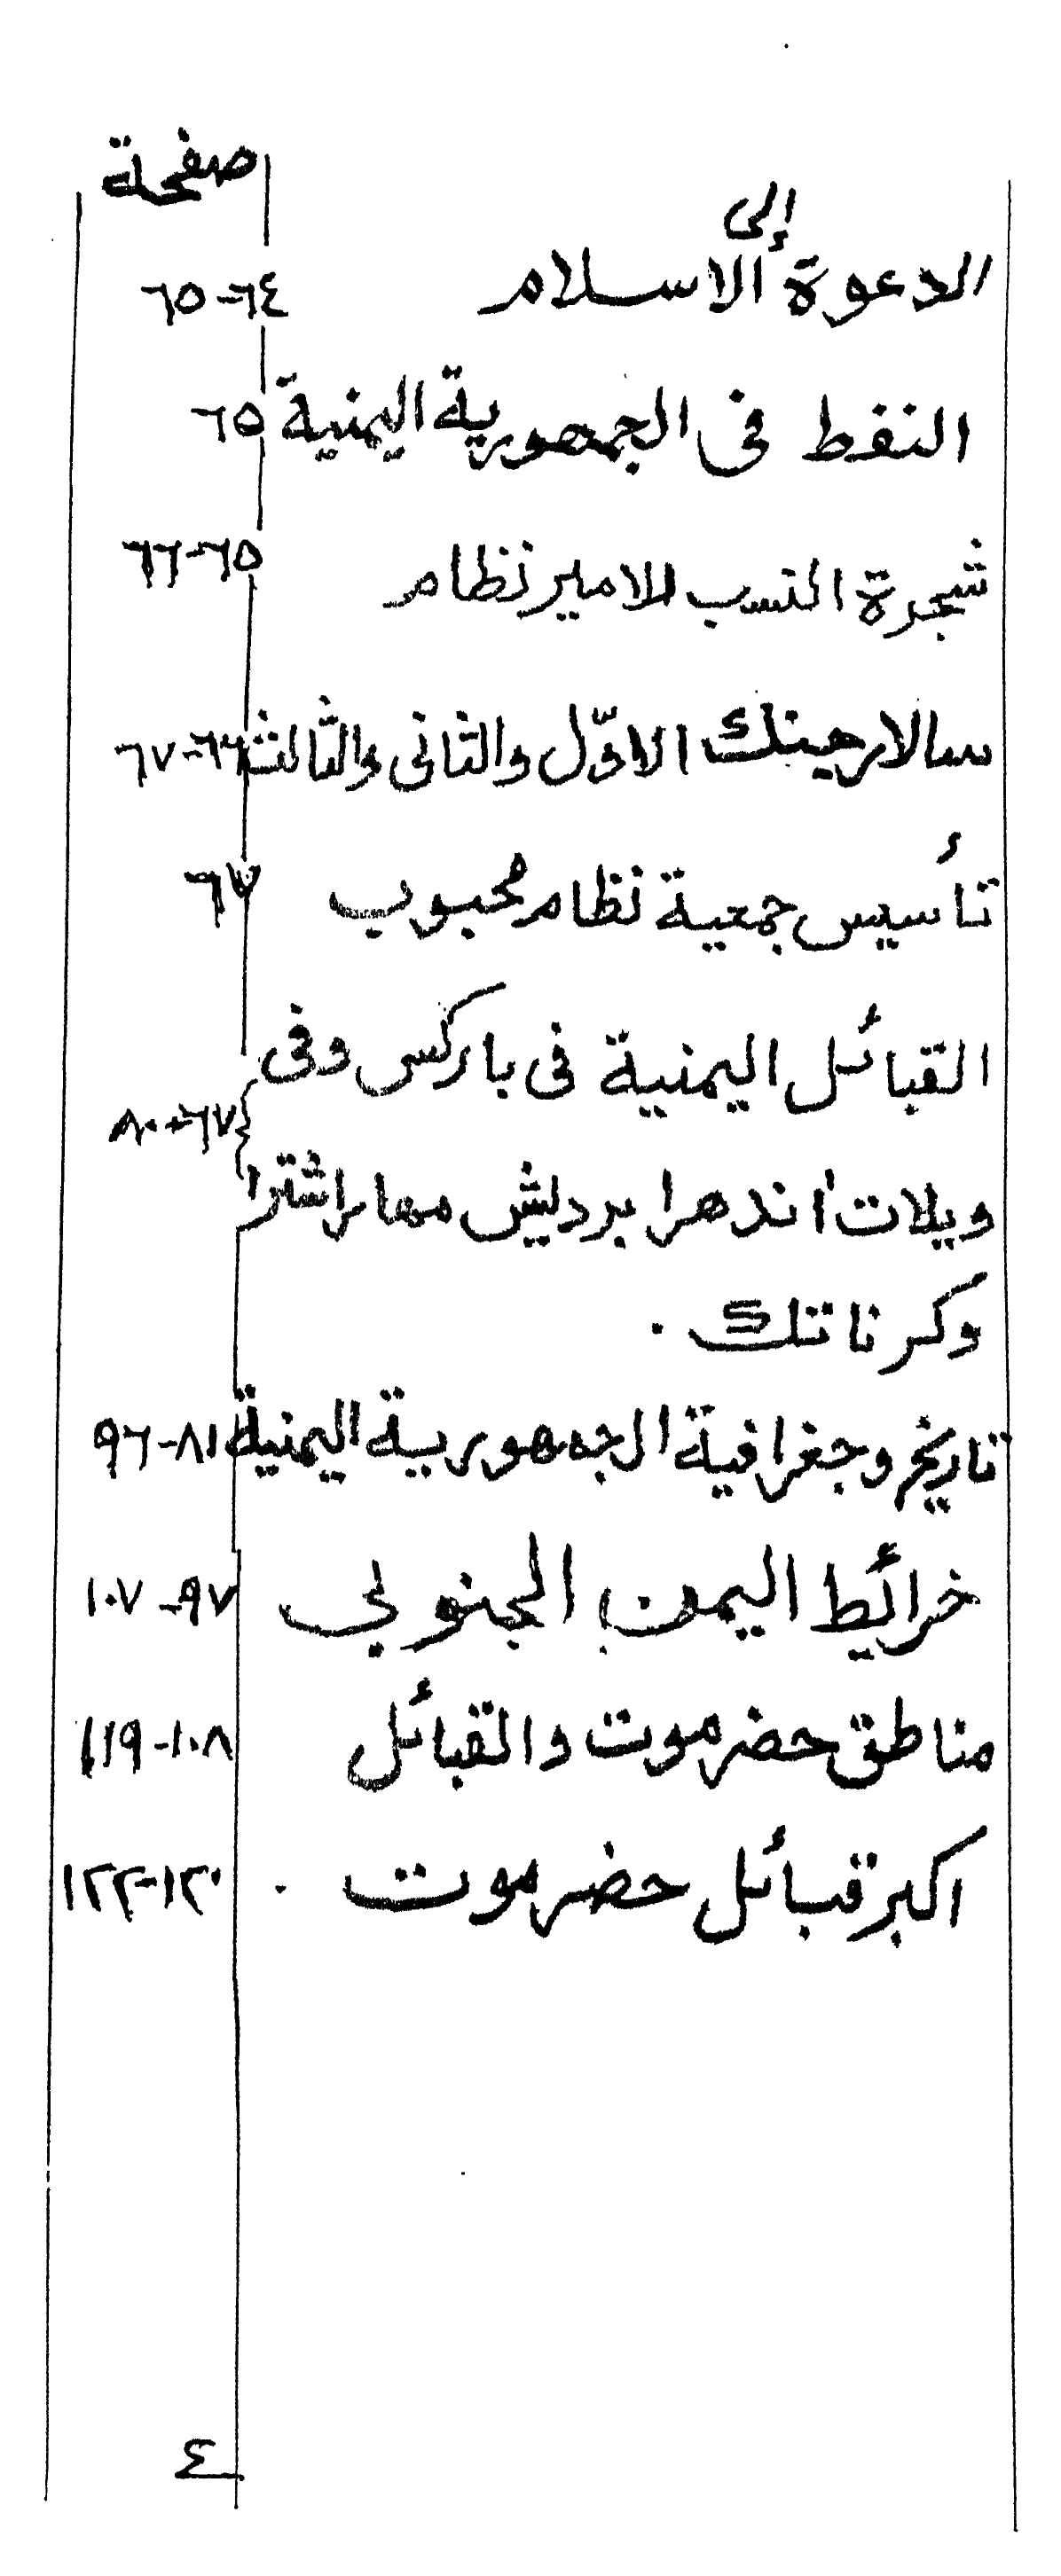 صفحة
الدعوة إلى الاسلام ٦٤-٦٥
النفط فى الجمهورية اليمنية ٦٥
شجرة النسب للامير نظام ٦٥-٦٦
سالارجينك الاوّل والثانى والثالث ٦٦-٦٧
تأسيس جمعية نظام محبوب ٦٧
القبائل اليمنية فى باركس وفى
ويلات اندهرا برديش مهاراشترا ٦٧-٨٠
وكرناتك .
تاريخ وجغرافية الجمهورية اليمنية ٨١-٩٦
خرائط اليمن الجنوبي ٩٧-١٠٧
مناطق حضرموت والقبائل ١٠٨-١١٩
اكبر قبائل حضرموت . ١٢٠-١٢٢
٤